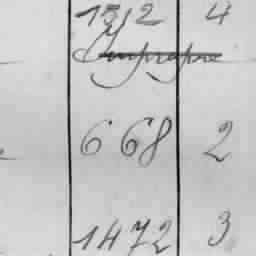 1512 4
Impropre
668 2
1472 3